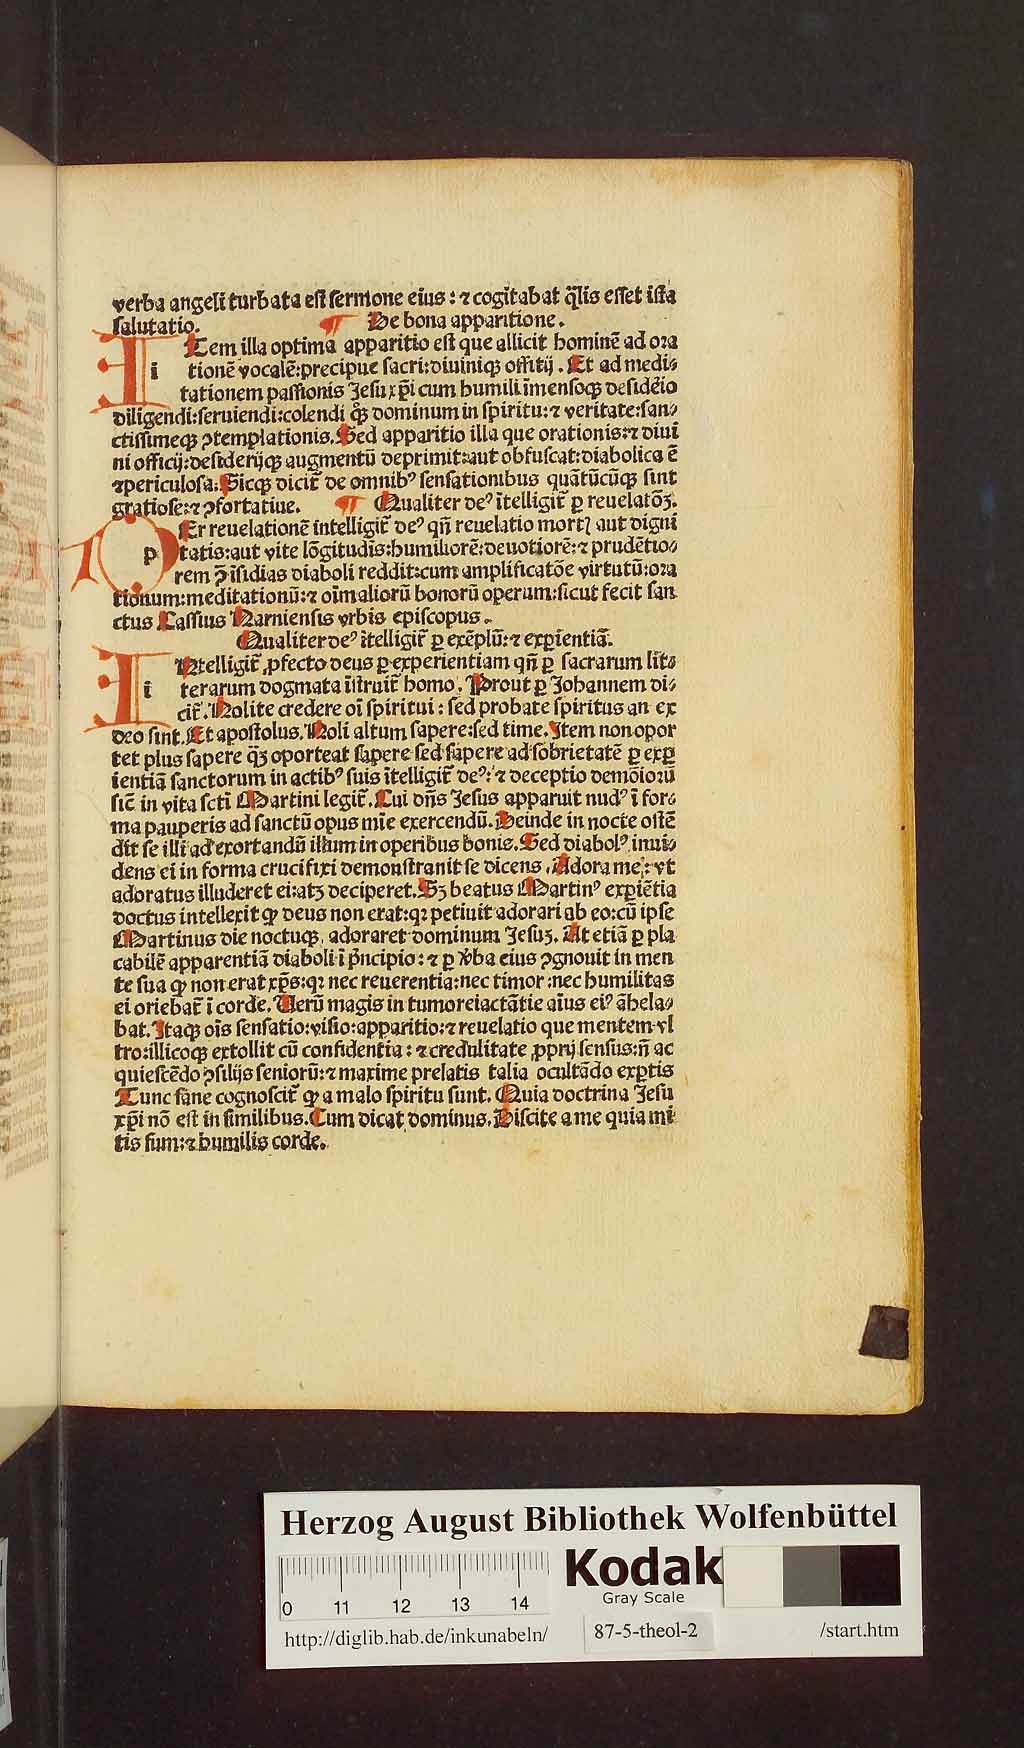 verba angeli turbata est sermone eius: ⁊ cogitabat q̃lis esset ista
salutatio. ¶ De bona apparitione.
ITem illa optima apparitio est que allicit hominē ad ora
tionē vocalē: precipue sacri: diuiniqꝫ offitij. Et ad medi⸗
tationem passionis Jesu xp̄i cum humili īmensoqꝫ desidēio
diligendi: seruiendi: colendi qꝫ dominum in spiritu: ⁊ veritate: san⸗
ctissimeqꝫ ꝯtemplationis. Sed apparitio illa que orationis: ⁊ diui
ni officij: desiderijqꝫ augmentū deprimit: aut obfuscat: diabolica ē
⁊ periculosa. Sicqꝫ dicit̃ de omnibꝰ sensationibus quātūcūqꝫ sint
gratiose: ⁊ ꝯfortatiue. ¶ Qualiter deꝰ ītelligit̃ ꝑ reuelatōꝫ.
PEr reuelationē intelligit̃ deꝰ qn̄ reuelatio mortꝭ aut digni
tatis: aut vite lōgitudīs: humiliorē: deuotiorē: ⁊ prudētio⸗
rem ꝯ̄ īsidias diaboli reddit: cum amplificatōe virtutū: ora
tionum: meditationū: ⁊ oīm aliorū bonorū operum: sicut fecit san
ctus Cassius Narniensis vrbis episcopus.
Qualiter deꝰ ītelligit̃ ꝑ exēplū: ⁊ exꝑientiā.
INtelligit̃ ꝓfecto deus ꝑ experientiam qn̄ ꝑ sacrarum lit⸗
terarum dogmata īstruit̃ homo. Prout ꝑ Johannem di⸗
cit̃. Nolite credere oī spiritui: sed probate spiritus an ex
deo sint. Et apostolus. Noli altum sapere: sed time. Item non opor
tet plus sapere q̄ꝫ oporteat sapere sed sapere ad sobrietatē ꝑ exꝑ
ientiā sanctorum in actibꝰ suis ītelligit̃ deꝰ: ⁊ deceptio demōioꝝ
sic̄ in vita sctī Martini legit̃. Cui dn̄s Jesus apparuit nudꝰ ī for⸗
ma pauperis ad sanctū opus mīe exercendū. Deinde in nocte ostē
dit se illi ad exortandū illum in operibus bonis. Sed diabolꝰ inui⸗
dens ei in forma crucifixi demonstrauit se dicens. Adora me: vt
adoratus illuderet ei: atꝫ deciperet. Sꝫ beatus Martinꝰ exꝑiētia
doctus intellexit ꝙ deus non erat: qꝛ petiuit adorari ab eo: cū ipse
Martinus die noctuqꝫ adoraret dominum Jesuꝫ. At etiā ꝑ pla
cabilē apparentiā diaboli ī p̄ncipio: ⁊ ꝑ v̄ba eius ꝯgnouit in men
te sua ꝙ non erat xp̄s: qꝛ nec reuerentia: nec timor: nec humilitas
ei oriebat̃ ī corde. Uerū magis in tumore iactātie aīus eiꝰ āhela⸗
bat. Itaqꝫ oīs sensatio: visio: apparitio: ⁊ reuelatio que mentem vl
tro: illicoqꝫ extollit cū confidentia: ⁊ credulitate ꝓprij sensus: n̄ ac
quiescēdo ꝯsilijs seniorū: ⁊ maxime prelatis talia ocultādo exꝑtis
Tunc sane cognoscit̃ ꝙ a malo spiritu sunt. Quia doctrina Jesu
xp̄i nō est in similibus. Cum dicat dominus. Discite a me quia mi
tis sum: ⁊ humilis corde.
Herzog August Bibliothek Wolfenbüttel
Kodak
Gray Scale
0 11 12 13 14
http://diglib.hab.de/inkunabeln/ 87-5-theol-2 /start.htm